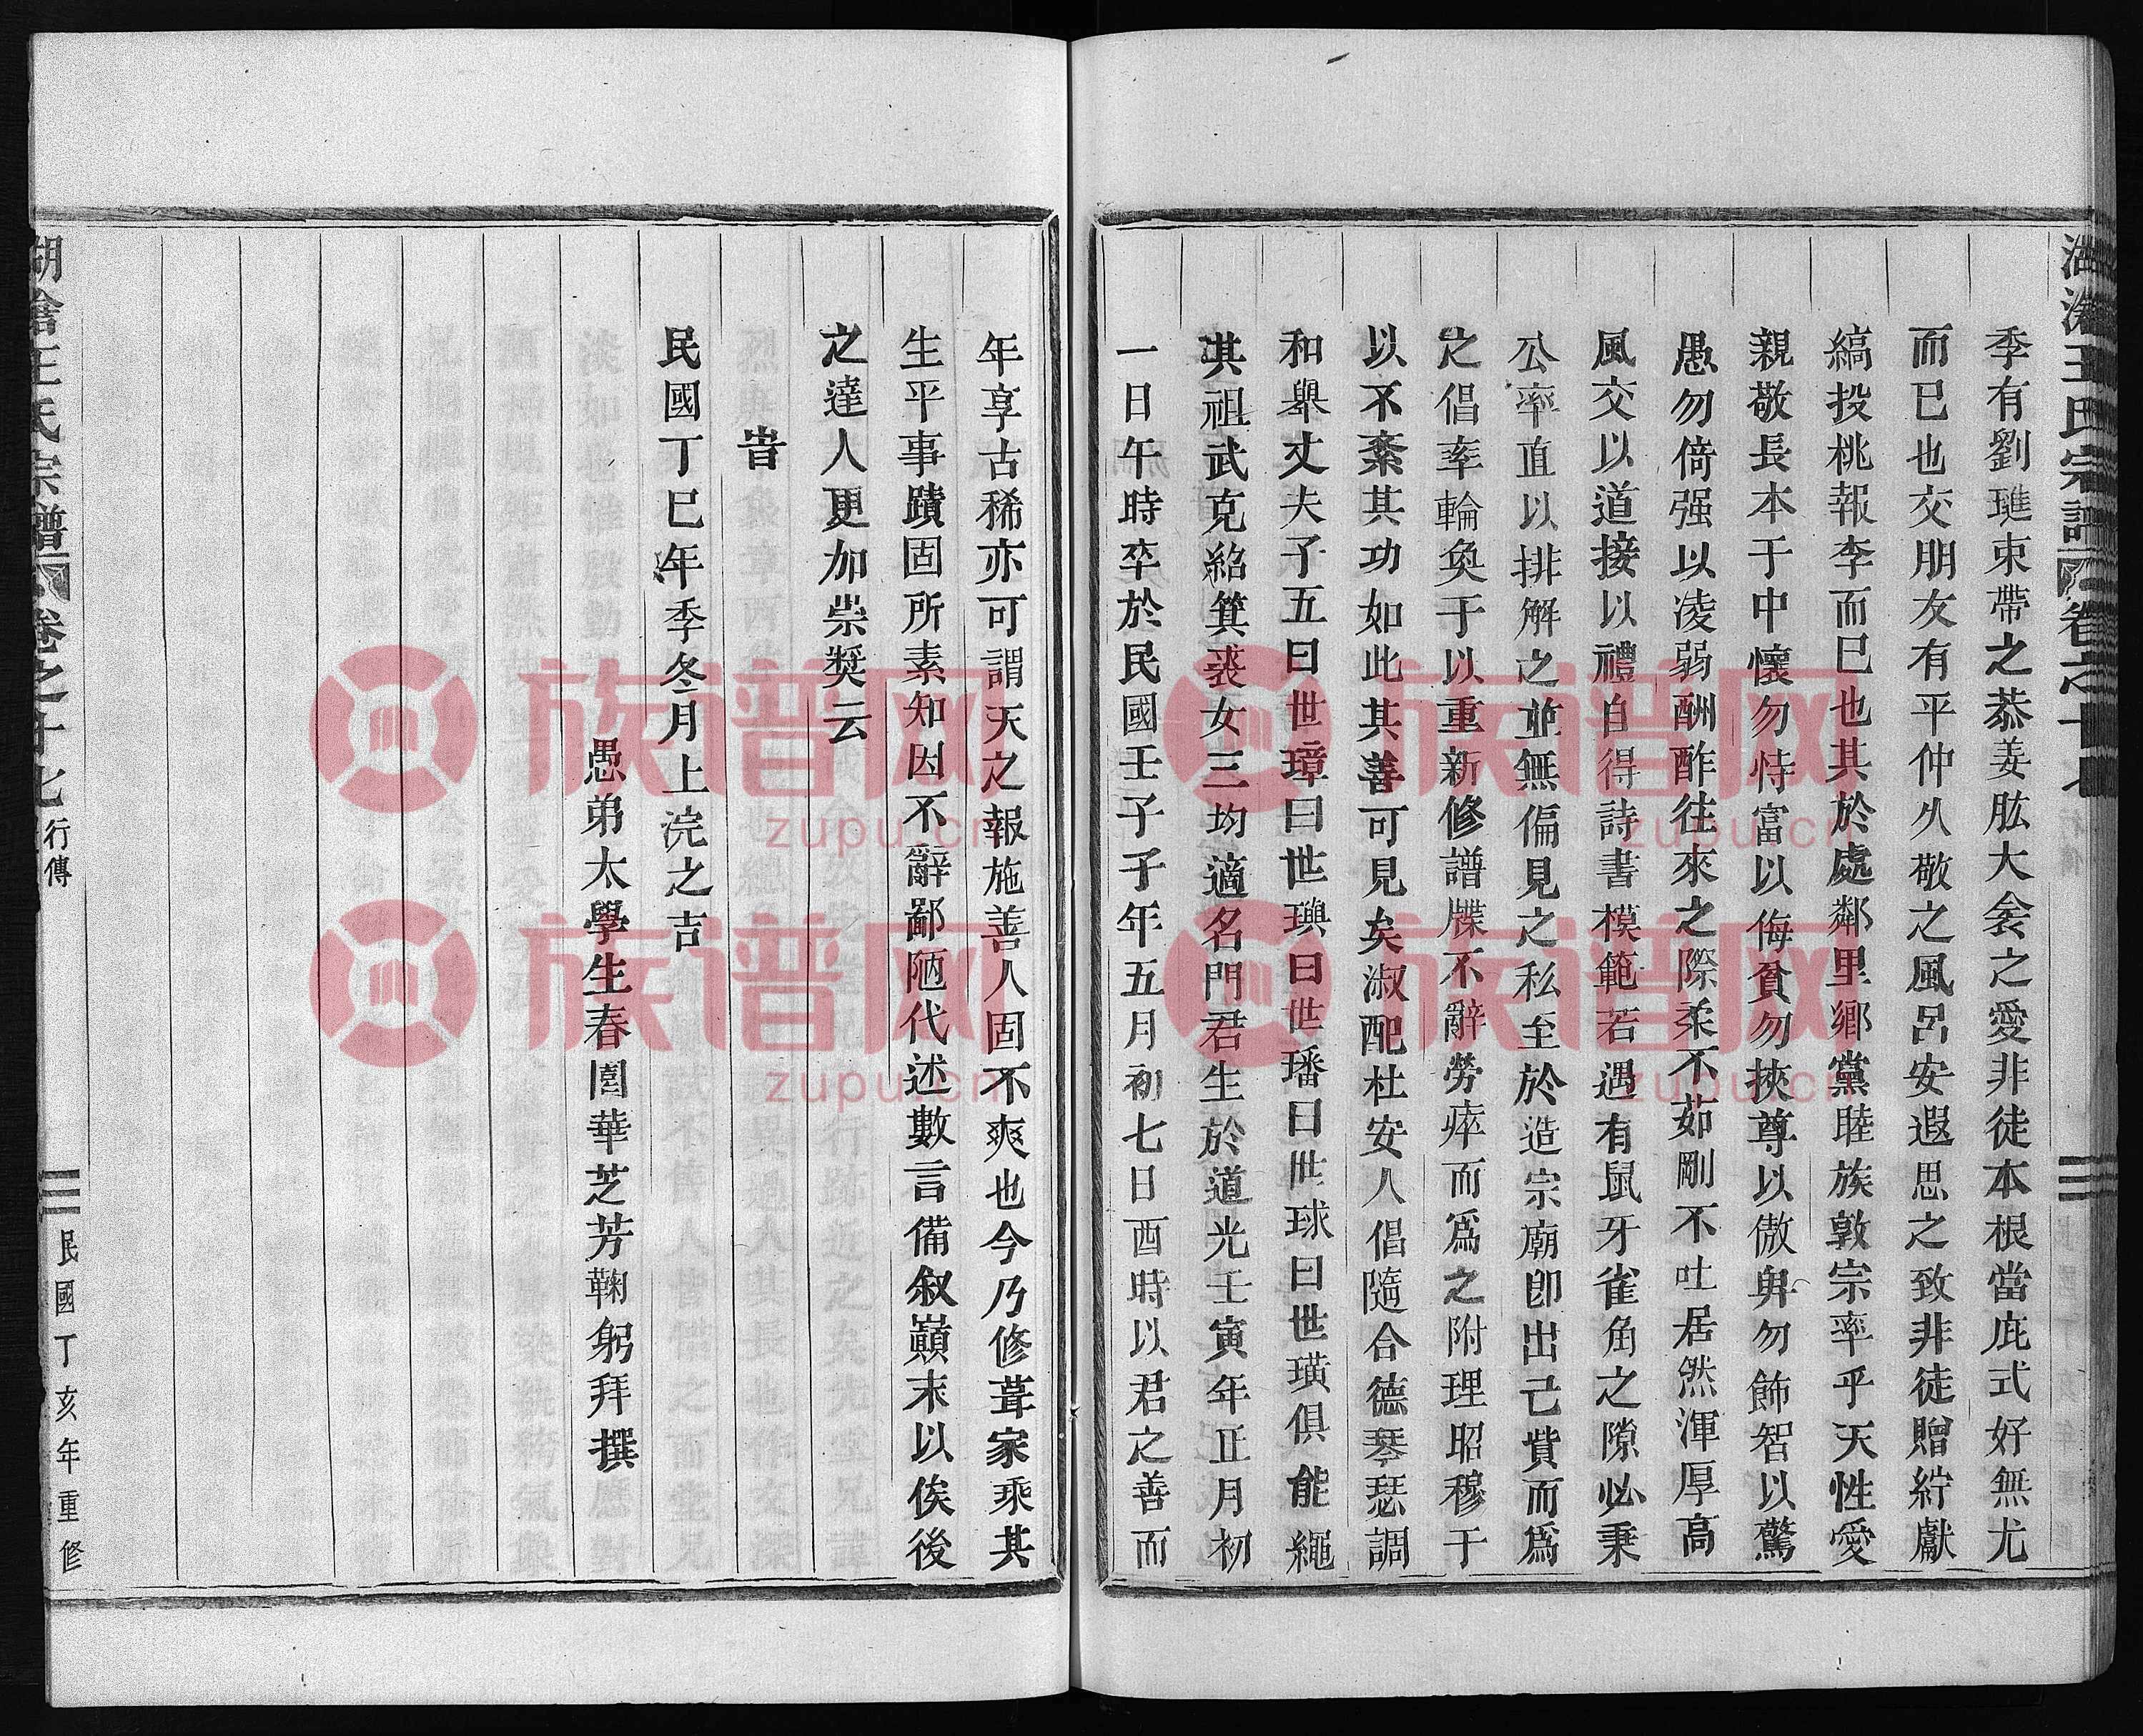 季有劉璡束帶之恭姜肱大衾之愛非徒本根當庇式好無尤
而已也交朋友有平仲久敬之風呂安遐思之致非徒贈紵獻
縞投桃報李而已也其於處鄰里鄉黨睦族敦宗率乎天性愛
親敬長本于中懷勿恃富以侮貧勿挾尊以傲卑勿飾智以驚
愚勿倚强以凌弱酬酢往來之際柔不茹剛不吐居然渾厚高
風交以道接以禮自得詩書模範若遇有鼠牙雀角之隙必秉
公率直以排解之並無偏見之私至於造宗廟卽出己貲而爲
之倡率輪奐于以重新修譜牒不辭勞瘁而爲之附理昭穆于
以不紊其功如此其善可見矣淑配杜安人倡隨合德琴瑟調
和舉丈夫子五曰世璋曰世璵曰世璠曰世球曰世璜俱能繩
其祖武克紹箕裘女三均適名門君生於道光壬寅年正月初
一日午時卒於民國壬子子年五月初七日酉時以君之善而
年享古稀亦可謂天之報施善人固不爽也今乃修葺家乘其
生平事蹟固所素知因不辭鄙陋代述數言備叙巔末以俟後
之達人更加崇獎云
旹
民國丁巳年季冬月上浣之吉
愚弟太學生春園華芝芳鞠躬拜撰
湖塗王氏宗譜 卷之十七 行傳 民國丁亥年重修
族谱网
zupu.cn
族谱网
zupu.cn
族谱网
zupu.cn
族谱网
zupu.cn